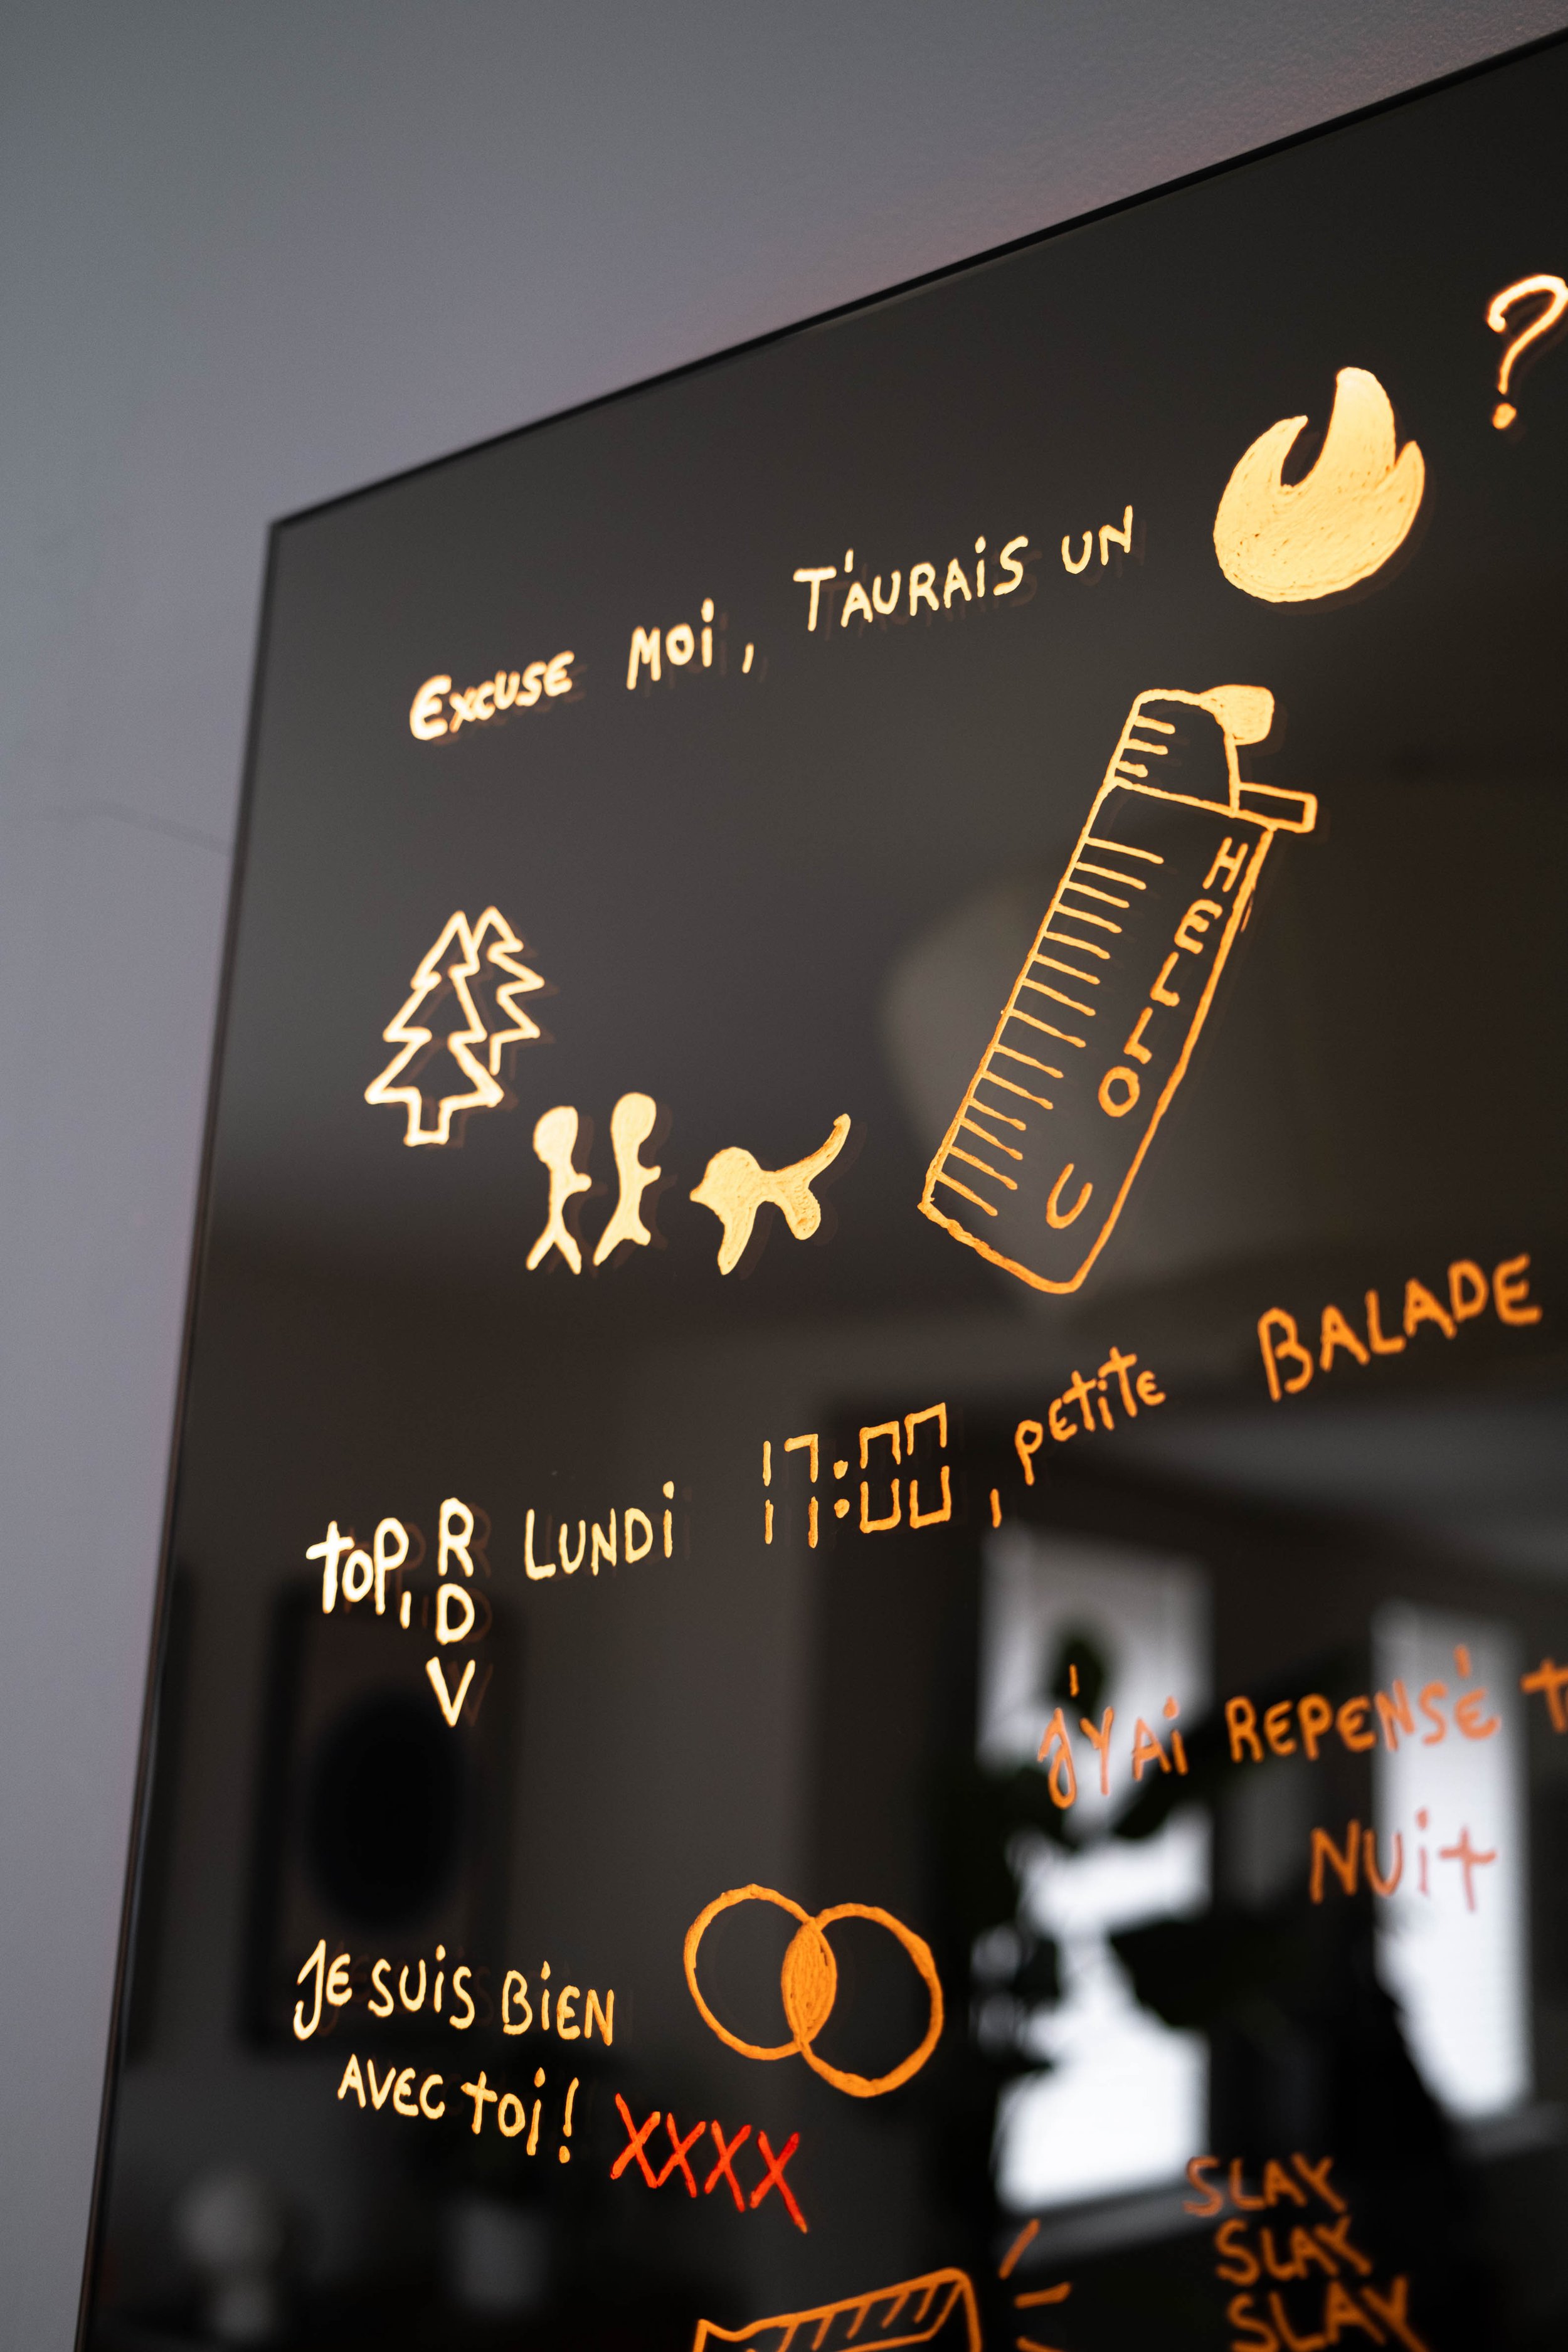 EXCUSE MOI, T'AURAIS UN ?
HELLO
U
toP, RDV LUNDI 17:00, petite BALADE
J'Y AI REPENSÉ
NUit
JE SUIS BIEN
AVEC toi! XXXX
SLAY
SLAY
SLAY